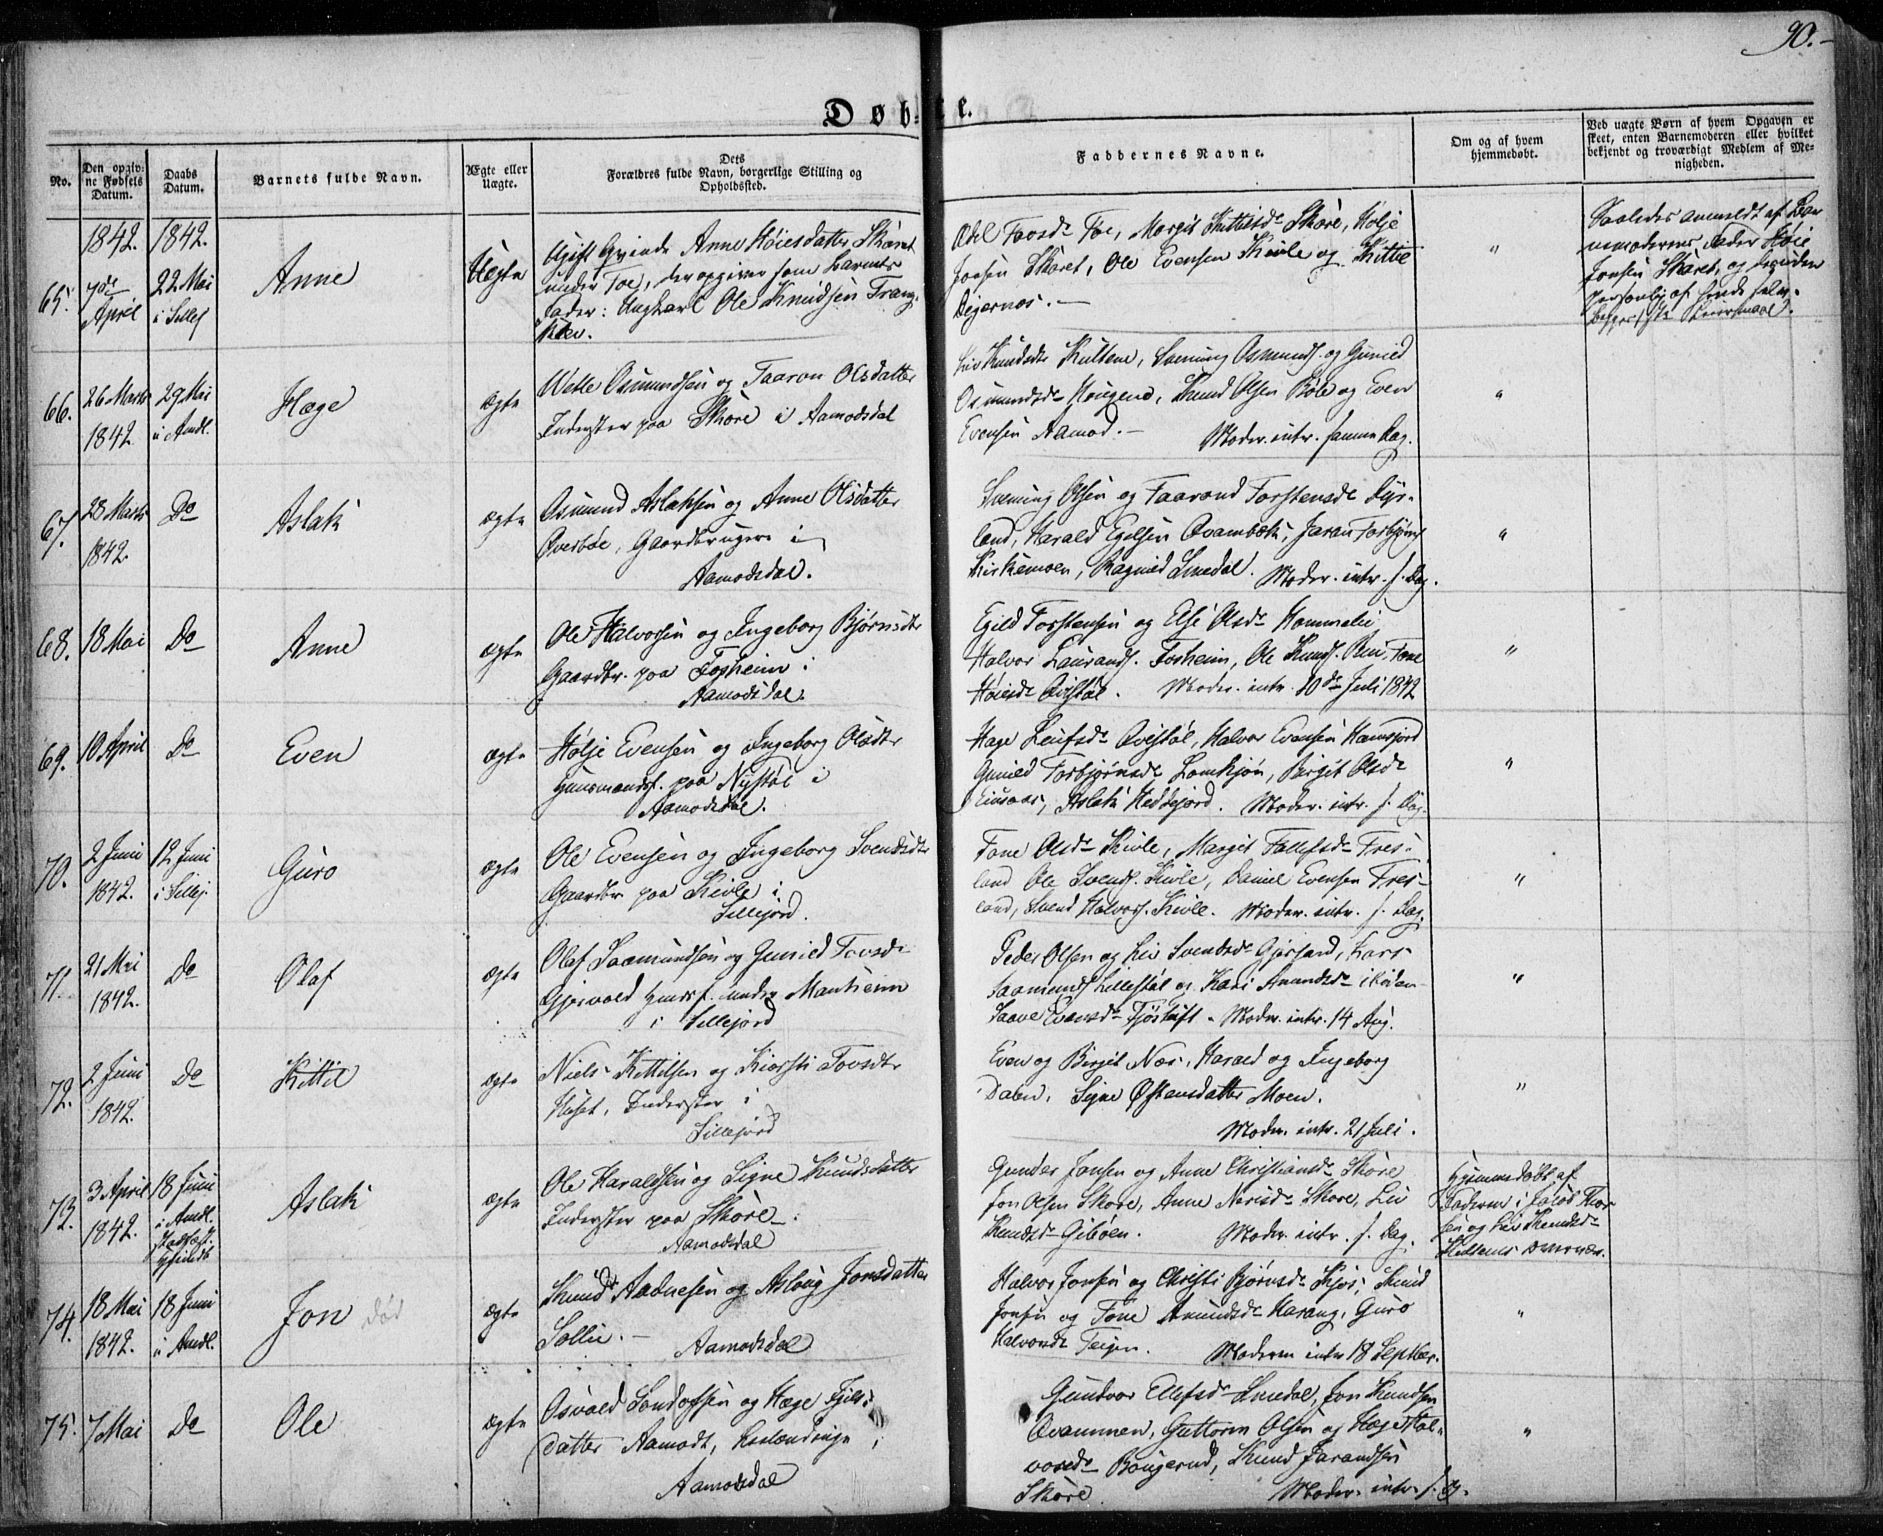 90.
Døbte.
No.
Den opgiv-
ne Fødsels
Datum.
Daabs
Datum.
Barnets fulde Navn.
Ægte eller
Uægte.
Dets
Forældres fulde Navn, borgerlige Stilling og
Opholdssted.
Faddernes Navne.
Om og af hvem
hjemmedøbt.
Ved uægte Børn af hvem Opgaven er
skeet, enten Barnemoderen eller hvilket
bekjendt og troværdigt Medlem af Me-
nigheden.
65.
1842.
7de
April
1842.
22 Mai
i Sillej
Anne
Uægte
Ugift Qvinde Anne Høiesdatter Skaret
under Toe, der opgiver som Barnets
Fader: Ungkarl Ole Knudsen
Adel Tovsdr Toe, Margit Kittilsdr Skore, Holje
Jonsen Skaret, Ole Evensen Kivle og Kittil
Degernes. —
"
Saaledes anmeldt af Bar
nemoderens Fader Høie
Jonsen Skaret, og desuden
66.
26 Marts
1842
29 Mai
i Amdl.
Hæge
ægte
Wetle Osmundsen og Taaron Olsdatter
Inderster paa Skore i Aamodsdal
Liv Knudsdtr Kultene, Sveinung Osmunds. og Gunild
Osmundsdr Haugene, Knud Olsen Bøle og Even
Evensen Aamod. — Moder. intr. samme Dag.
"
67.
28 Marts
1842.
Do
Aslak
ægte
Osmund Aslaksen og Anne Olsdatter
Øverbøe, Gaardbrugere i
Aamodsdal.
Sveinung Olsen og Taarond Torstensdr Dyr-
land, Harald Egilsen Qvambæk, Jaran Torbjørns
Kirkemoen, Ragnild Smedal. Moder. intr. s. Dag.
"
68.
18 Mai
Do
Anne
ægte
Ole Halvorsen og Ingeborg Bjørnsdtr
Gaardbr. paa Forheim i
Aamodsdal.
Egild Torstensen og Else Olsdr Hommelie
Halvor Laurands. Forheim, Ole Knuds. Rui, Tone
Høiesdr Qvistøl. Moder. intr. 10de Juli 1842
"
69.
10 April
Do
Even
ægte
Holje Evensen og Ingeborg Olsdtr
Huusmandsf. paa Nystøl i
Aamodsdal.
Hage Leifsdr Qvistøl, Halvor Evensen Hamsjord
Gunild Torbjørnsdr Lomkjøn, Birgit Olsdr
Aslak Heddejord. Moder. intr. s. Dag.
"
70.
2 Juni
1842.
12 Juni
i Sillej.
Guro
ægte
Ole Evensen og Ingeborg Svendsdtr
Gaardbr paa Kivle i
Sillejord.
Tone Olsdr Kivle, Margit Tollefsdr Tres-
land Ole Svends. Kivle, Daniel Evensen Tres-
land, Svend Halvors. Kivle. Moder. intr. s. Dag.
"
71.
21 Mai
1842.
Do
Olaf
ægte
Olaf Saamundsen og Gunild Tovsdr
Gjervold Huusf. under Mantheim
i Sillejord
Peder Olsen og Liv Svendsdr Lars
Saamunds Lillestøl og Kari Amundsdr
Saave Evensdr Fjøstuft. Moder. intr. 14 Aug.
"
72.
2 Juni
1842.
Do
Kittil
ægte
Niels Kittilsen og Kiersti Tovsdtr
Huset, Inderster i
Sillejord
Even og Birgit Næs, Harald og Ingeborg
Dalen, Signe Østensdatter Moen.
Moder. intr. 21 Juli.
"
73.
3 April
1842.
18 Juni
i Amdl.
Aslak
ægte
Ole Haraldsen og Signe Knudsdatter
Inderster paa Skore i
Aamodsdal
Gunder Jonsen og Anne Christiansdr Skore
Jon Olsen Skore, Anne Nerisdr Skore, Liv
Knudsdr Gibøen. Moder intr. s. Dag.
Hjemmedøbt af
Faderen i
og Liv Knudsdr
74.
18 Mai
1842.
18 Juni
i Amdl.
Jon død
ægte
Knud Aadnesen og Aslaug Jonsdatter
Sollie. — Aamodsdal
Halvor Jonsen og Christi Bjørnsdr Skjøs, Knud
Jonsen og Tone Amundsdr Harang, Guro
Halvorsdr Teigen. Moderen intr 18 Septber.
"
75.
7 Mai
Do
Ole
ægte
Osvald Sondofsen og Hæge
datter Aamodt, i
Aamodsdal
Gundvor Ellefsdr Smedal, Jon Knudsen
Qvammen, Guttorm Olsen og Hæge Hal-
vorsdr Bougerud, Knud Jarandsen
Skore. Moder. intr. s. Dg.
"